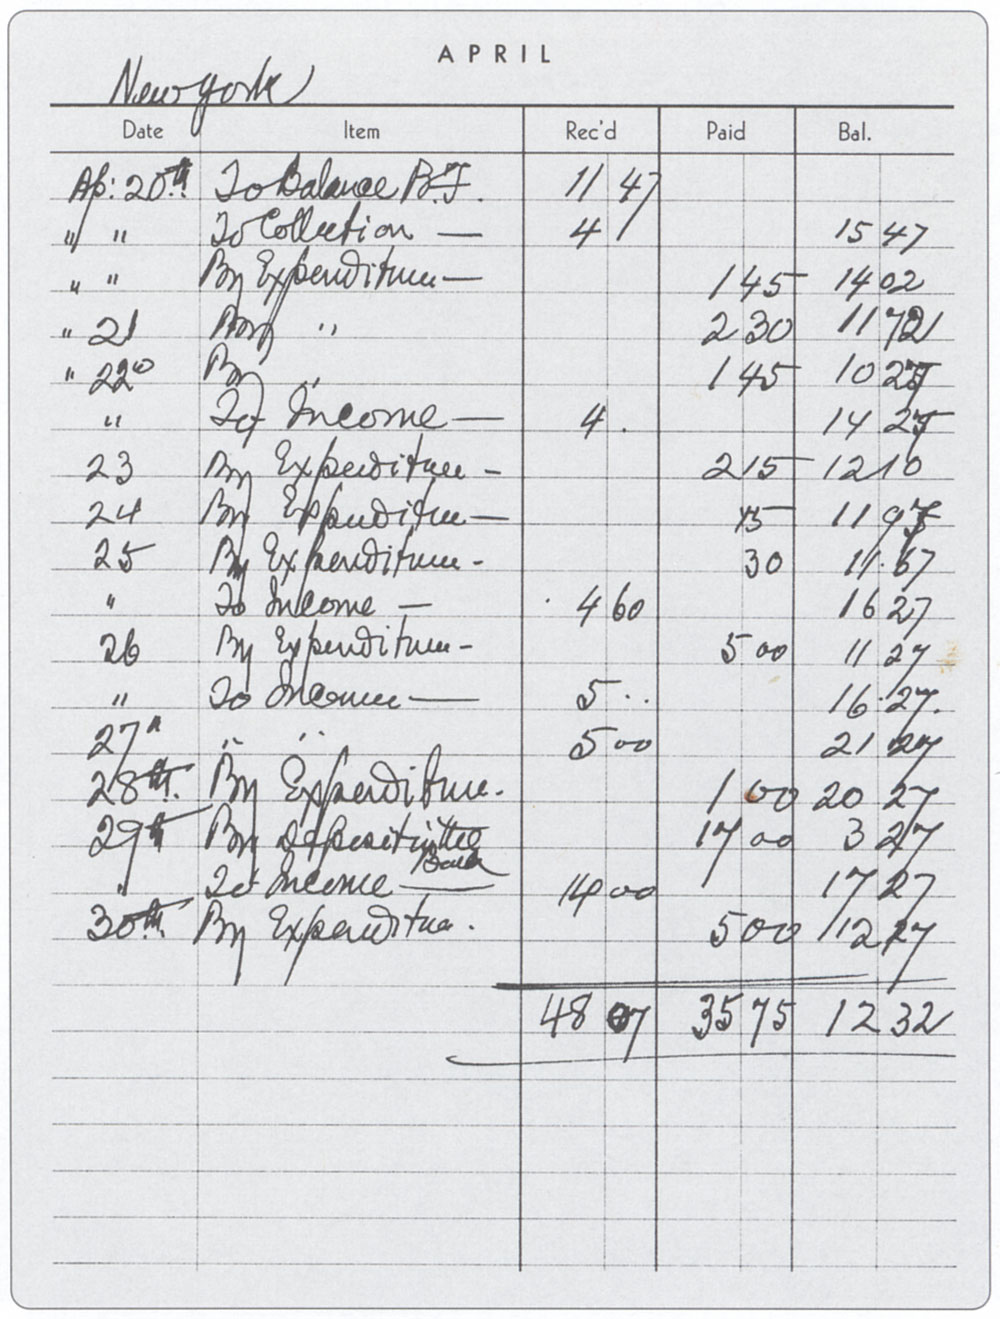 APRIL
New York
Date Item Rec'd Paid Bal.
Ap: 20th To Balance B.F. 11 47
" " To Collection — 4 15 47
" " By Expenditure — 1 45 14 02
" 21 By " 2 30 11 72
" 22 By " 1 45 10 27
" To Income — 4. 14 25
23 By Expenditure - 2 15 12 10
24 By Expenditure — 15 11 97
25 By Expenditure - 30 11.67
" To Income — 4 60 16 27
26 By Expenditure - 5 00 11 27
" To Income — 5 .. 16.27.
27" " " 5 00 21 27
28th. By Expenditure. 1 00 20 27
29th By depositing the 17 00 3 27
Bank
" To Income — 14 00 17 27
30th. By Expenditure. 5 00 12 27
48 07 35 75 12 32